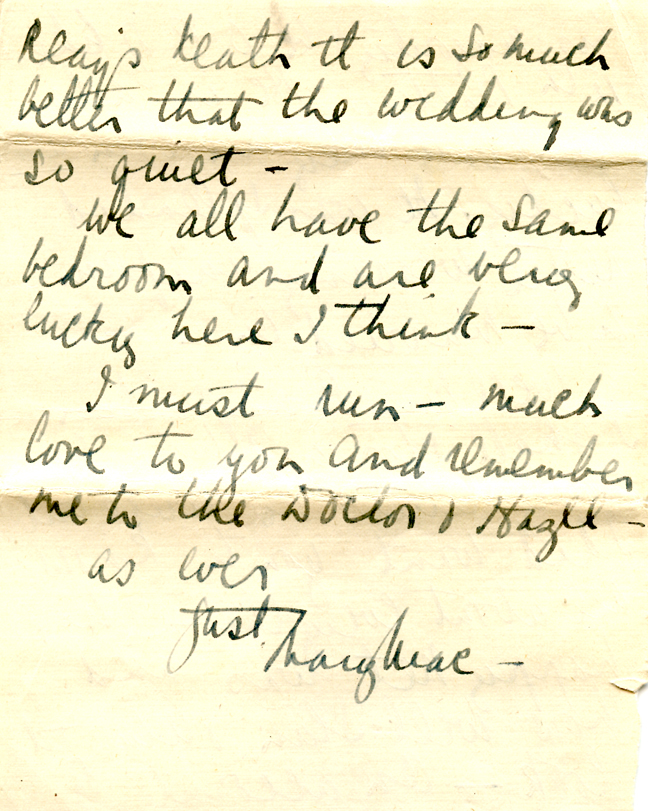 Reay's death it is so much
better that the wedding was
so quiet -
We all have the same
bedroom and are very
lucky here I think -
I must run - much
love to you and remember
me to the Doctor & Hazel -
as ever
Just
Mary Mac -